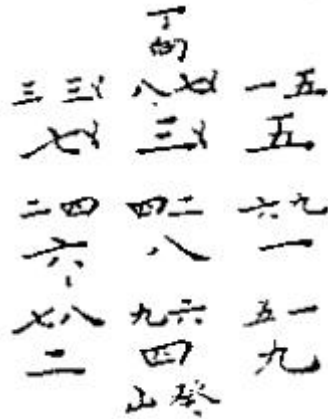 丁
向
三三 八七 一五
七 三 五
二四 四二 六九
六 八 一
七八 九六 五一
二 四 九
山癸